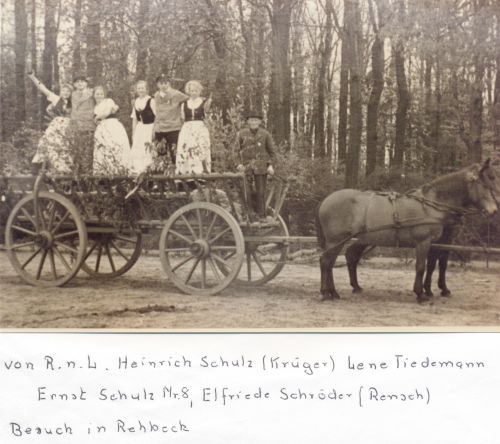 von R.n.L. Heinrich Schulz (Krüger) Lene Tiedemann
Ernst Schulz Nr.8, Elfriede Schröder (Rensch)
Besuch in Rehbeck